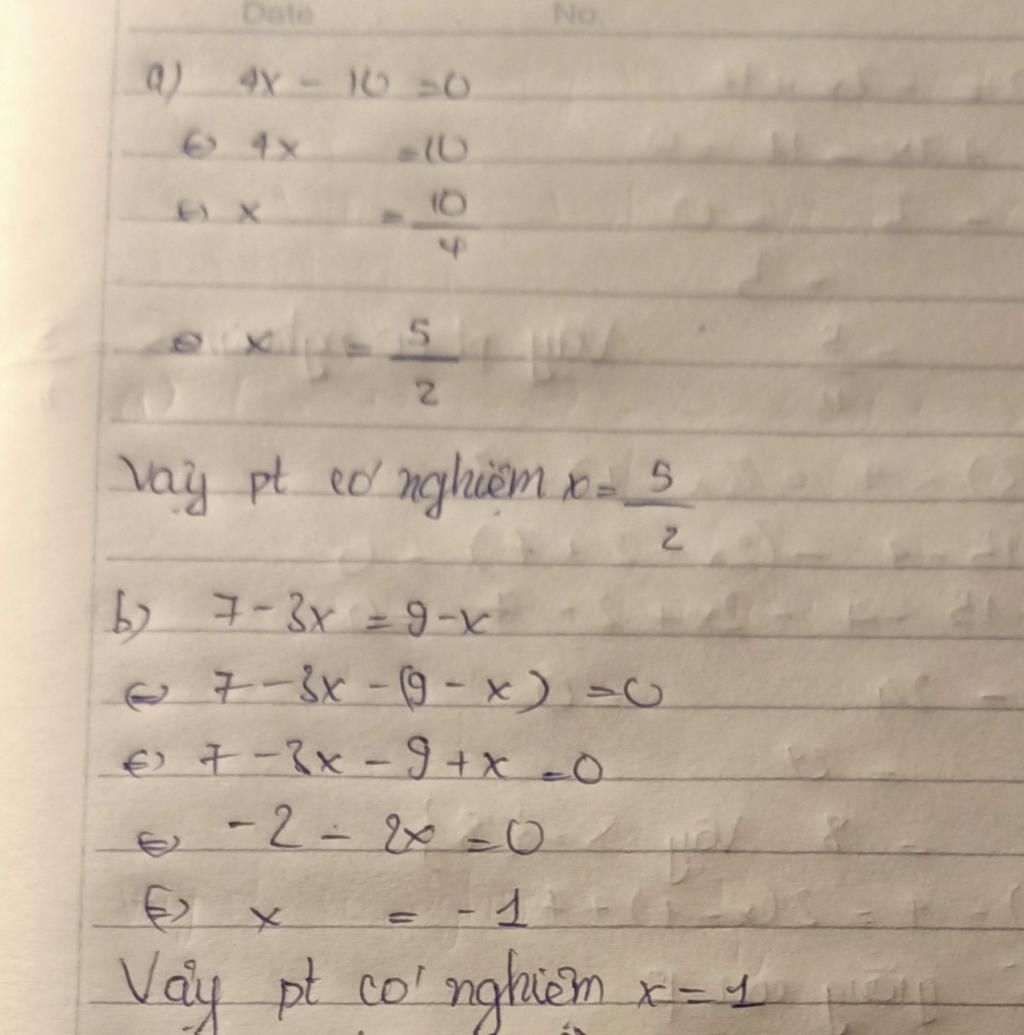 Date No.
a) 4x - 10 = 0
⇔ 4x = 10
⇔ x = 10/4
⇔ x = 5/2
Vậy pt có nghiệm x = 5/2
b) 7 - 3x = 9 - x
⇔ 7 - 3x - (9 - x) = 0
⇔ 7 - 3x - 9 + x = 0
⇔ -2 - 2x = 0
⇔ x = -1
Vậy pt có nghiệm x = 1